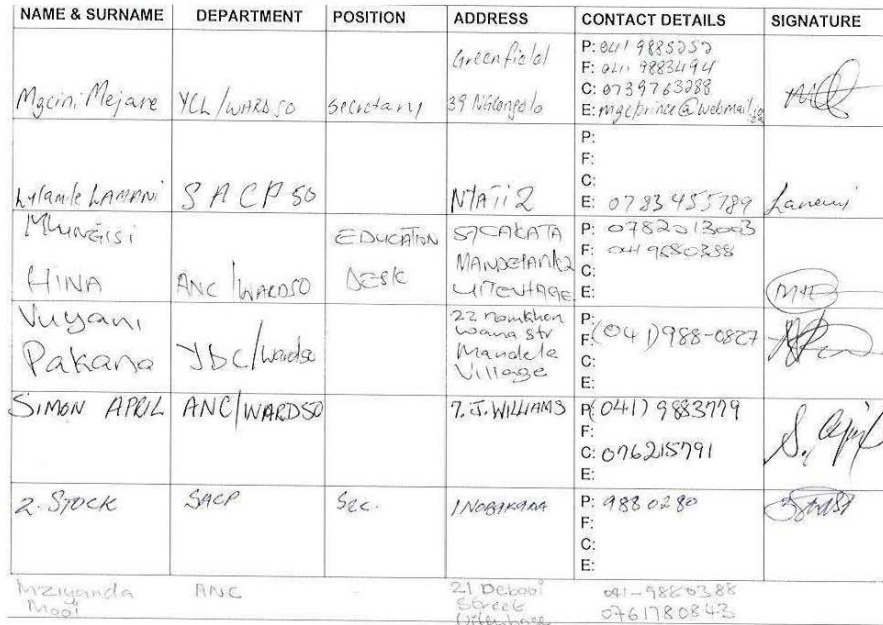 NAME & SURNAME DEPARTMENT POSITION ADDRESS CONTACT DETAILS SIGNATURE
Mgcini Mejare YCL/WARD 50 Secretary Greenfield
39 P: 041 9885252
F: 041 9883494
C: 0739763288
E: mgcprince@webmail
LAMANI SACP 50 NYATI 2 P:
F:
C:
E: 0783455789
HINA ANC/WARD50 EDUCATION
DESK UITENHAGE P: 0782013003
F: 041 9880388
C:
E:
Vuyani
Pakana /Ward50 22
wana str
Mandela
Village P:
F: (041)988-0827
C:
E:
SIMON APRIL ANC/WARD50 7. J. WILLIAMS P: (041) 9883779
F:
C: 076215791
E:
Z. STOCK SACP Sec. P: 9880280
F:
C:
E:
Mziyanda
Mooi ANC 21
Street
Uitenhage 041-9880388
0761780843